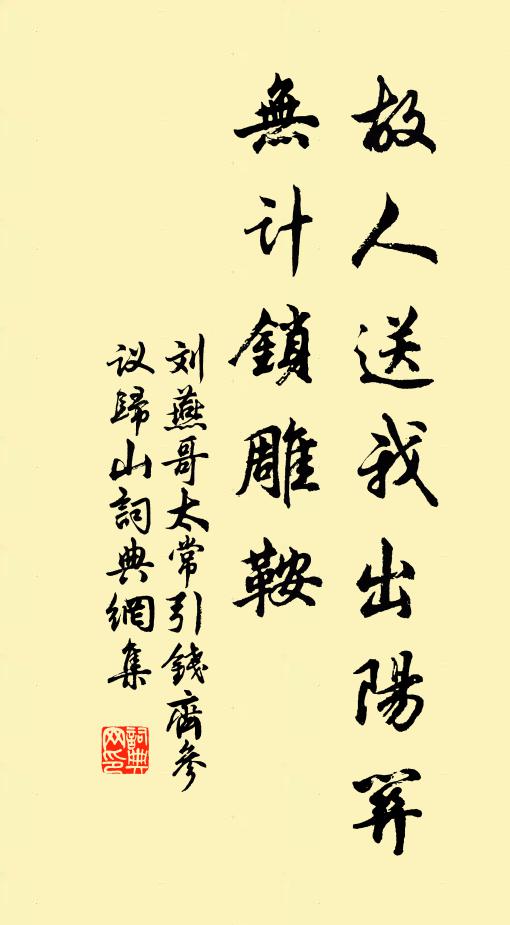 故人送我出陽關
無计鎖雕鞍
刘燕哥太常引錢齊參
议歸山詞典網集
詞典網印